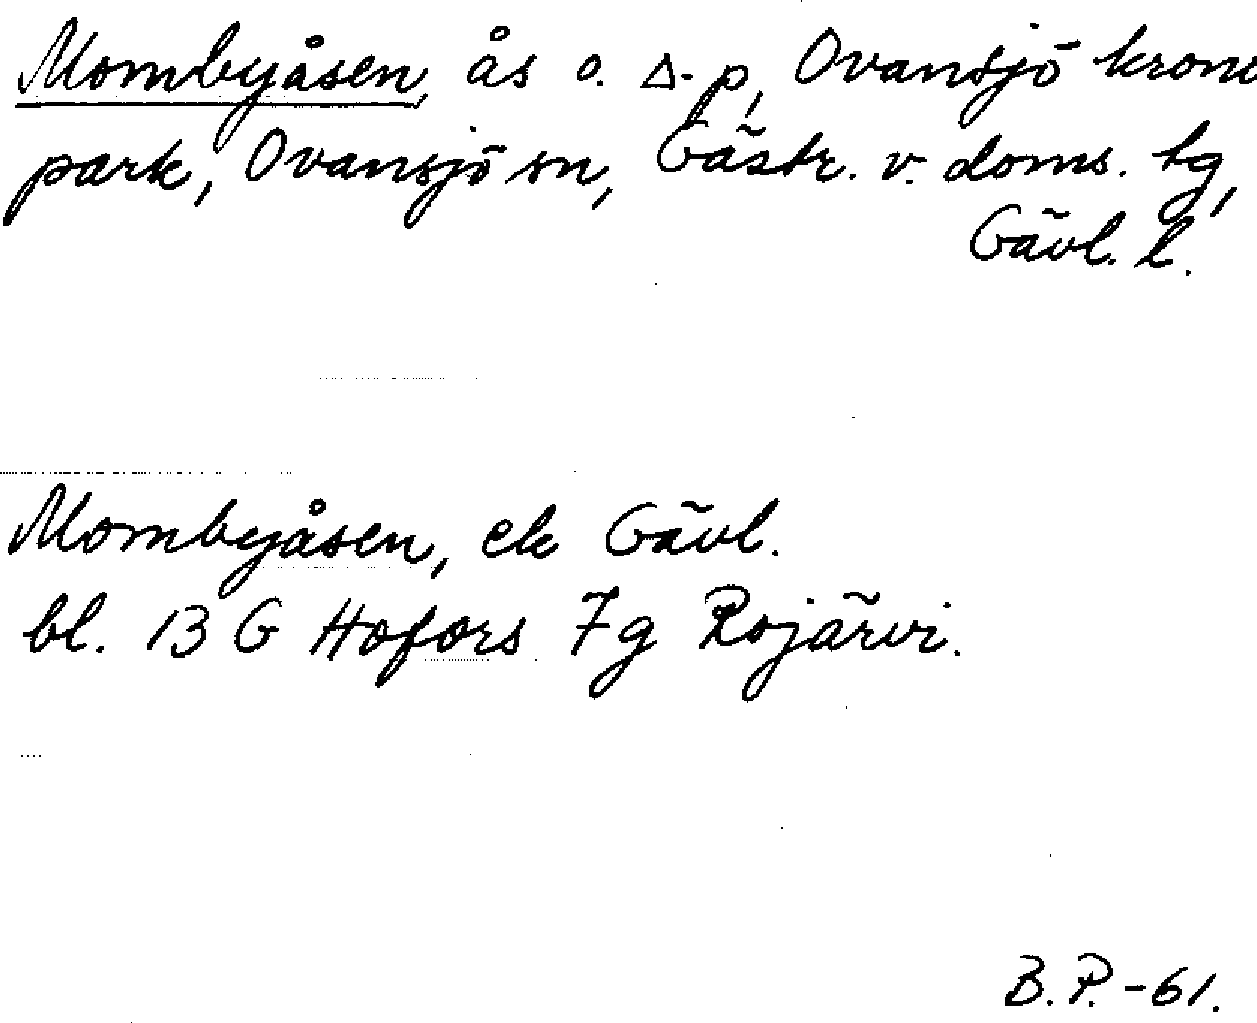 Mombyåsen, ås o. Δ-p, Ovansjö krono
park, Ovansjö sn, Gästr. v. doms. tg,
Gävl. l.
Mombyåsen, ek Gävl.
bl. 13 G Hofors 7g Rojärvi.
B.P.-61.